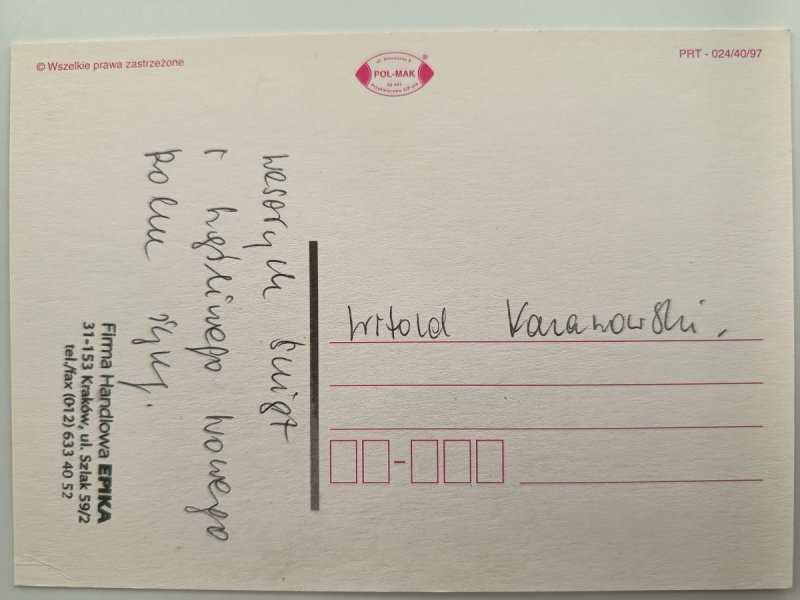 © Wszelkie prawa zastrzeżone
POL-MAK
®
PRT - 024/40/97
Wesołych Świąt
i
Nowego
Roku życzy.
Firma Handlowa EPIKA
31-153 Kraków, ul. Szlak 59/2
tel./fax (012) 633 40 52
Witold Karanowski.